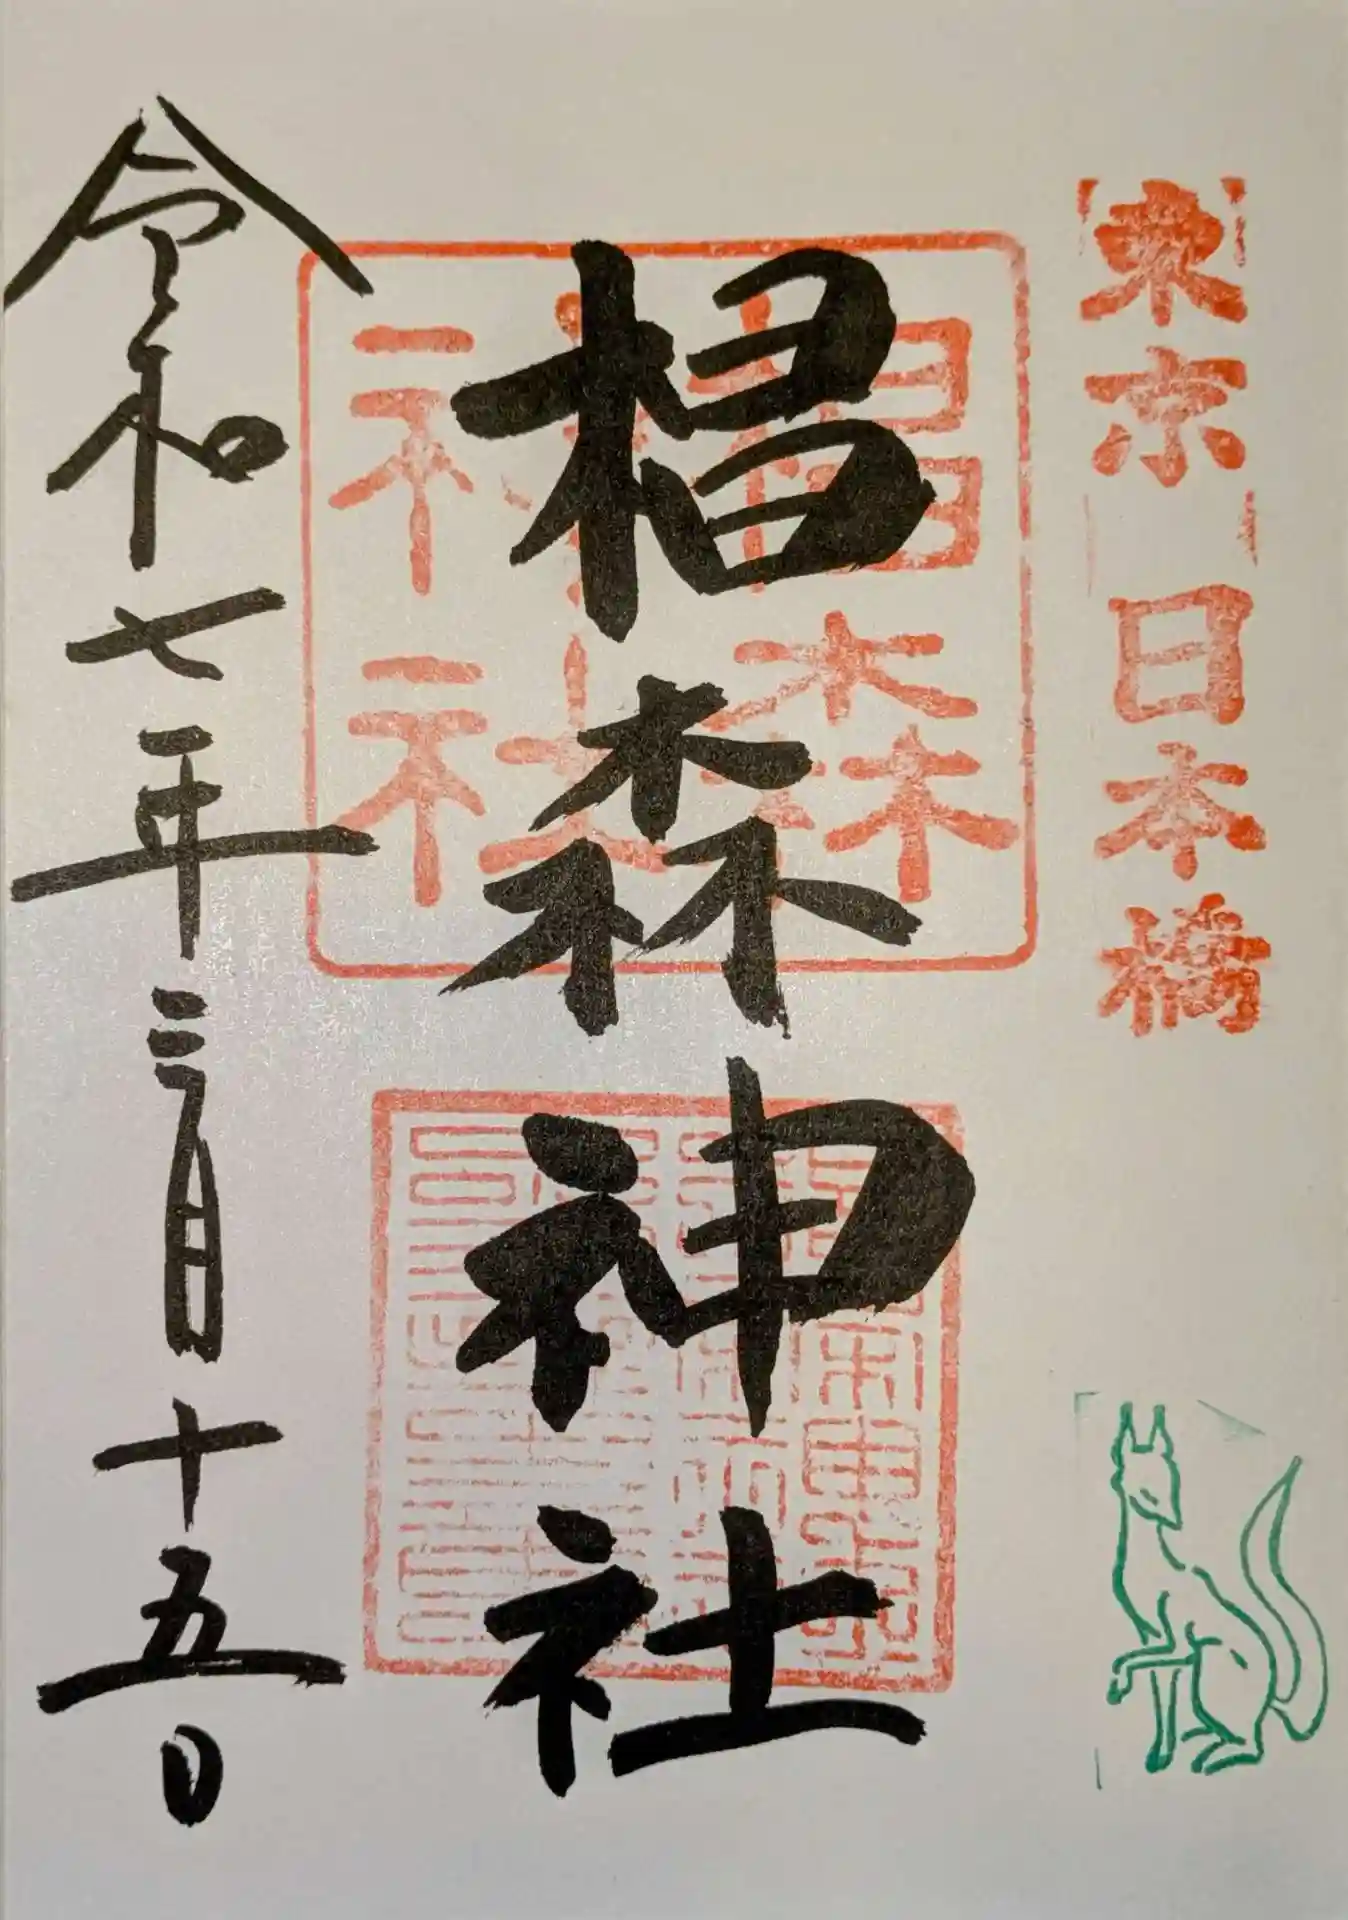 東京日本橋
椙森神社
椙森
神社
令和七年三月十五日